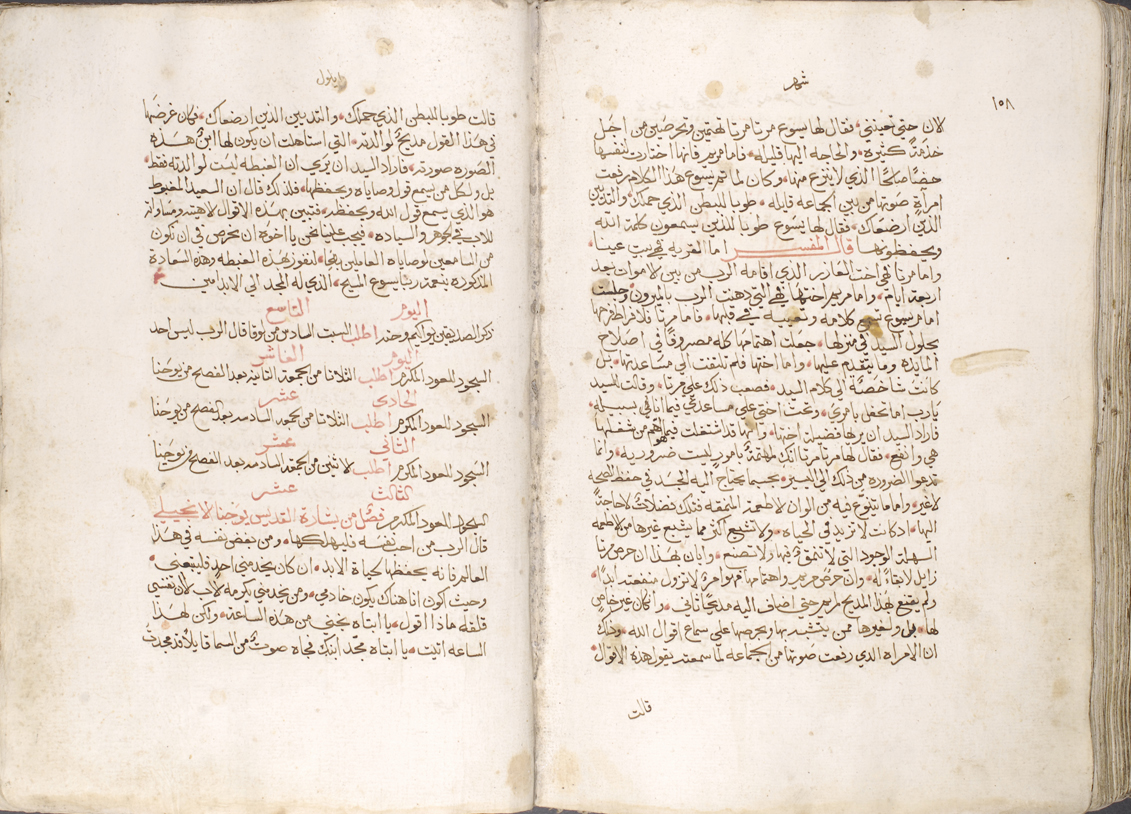 شهر
١٥٨
لان حتى تعينني فقال لها يسوع مرتا مرتا تهتمين وتحرصين من اجل
خدمة كثيرة والحاجه اليها قليله فاما مريم فانها اختارت لنفسها
حضًا صالحًا الذي لا ينزع منها وكان لما تمم يسوع هذا الكلام رفعت
امراة صوتها من بين الجماعه قايله طوبا للبطن الذي حملك والثديين
الذين ارضعاك فقال لها يسوع طوبا للذين يسمعون كلمة الله
ويحفظونها قال المفسر اما القريه فهي بيت عينا
واما مرتا فهي اخت العازر الذي اقامه الرب من بين الاموات بعد
اربعة ايام واما مريم اختها فهي التي دهنت الرب بالميرون وجلست
امام يسوع تسمع كلامه وتعييه في قلبها فاما مرتا فلافراط فرحها
بحلول السيد في منزلها جعلت اهتمامها كله مصروفًا في اصلاح
المايده وما يتقدم عليها واما اختها فلم تلتفت الى مساعدتها بل
كانت شاخصة الى كلام السيد فصعب ذلك على مرتا وقالت للسيد
يا رب اما تحفل بامري وتحث اختي على مساعدتي فيما انا في سبيله
فاراد السيد ان يريها فضيلة اختها وانها قد اشتغلت فيما هو اهم من شغلها
هي وانفع فقال لها مرتا مرتا انك لمهتمة بامور ليست ضروريه وانما
تدعوا الضروره من ذلك الى اليسير بحسب ما يحتاج اليه الجسد في حفظ الصحه
لا غير واما ما يتنوع فيه من الوان الاطعمة المنمقه فتلك فضلات لا حاجة
اليها اذ كانت لا تزيد في الحياه ولا تشبع اكثر مما يشبع غيرها من الاطعمه
السهلة الوجود التي لا تنمق فيها ولا تصنع وابان لهذا ان حرص مرتا
زايل لا بقاء له وان حرص مريم واهتمامها هو بامر لا تزول منفعته ابدًا
ولم يقنع بهذا المديح لمريم حتى اضاف اليه مديحًا ثاني وان كان غير خاص
لها بل ولغيرها ممن يتشبه بها بحرصها على سماع اقوال الله وذلك
ان الامراه الذي رفعت صوتها من الجماعه لما سمعته يقول هذه الاقوال
قالت
ايلول
قالت طوبا للبطن الذي حملك والثديين الذين ارضعاك فكان غرضها
في هذا القول مديحًا لوالدته التي استاهلت ان يكون لها ابن هذه
الصوره صورته فاراد السيد ان يري ان الغبطه ليست لوالدته فقط
بل ولكل من يسمع قول وصاياه ويحفظها فلذلك قال ان السعيد المغبوط
هو الذي يسمع قول الله ويحفظه فتبين بهذه الاقوال لاهيته ومساواته
للاب في الجوهر والسياده فيجب علينا نحن يا اخوه ان نحرص في ان نكون
من السامعين لوصاياه العاملين بها لنفوز بهذه الغبطه وهذه السعادة
المذكوره بنعمة ربنا يسوع المسيح الذي له المجد الى الابد امين
اليوم التاسع
ذكر الصديقين يواكيم وحنه اطلب السبت السادس من لوقا قال الرب ليس احد
اليوم العاشر
السجود للعود المكرم اطلب الثلاثا من الجمعه الثانيه بعد الفصح من يوحنا
الحادي عشر
السجود للعود المكرم اطلب الثلاثا من الجمعه السادسه بعد الفصح من يوحنا
الثاني عشر
السجود للعود المكرم اطلب الاثنين من الجمعه السادسه بعد الفصح من يوحنا
الثالث عشر
السجود للعود المكرم فصل من بشارة القديس يوحنا الانجيلي
قال الرب من احب نفسه فليهلكها ومن بغض نفسه في هذا
العالم فانه يحفظها لحياة الابد ان كان يخدمني احد فليتبعني
وحيث اكون انا هناك يكون خادمي ومن يخدمني يكرمه الاب الان نفسي
قلقه ماذا اقول يا ابتاه نجني من هذه الساعة ولكن لهذا
الساعه اتيت يا ابتاه مجد ابنك فجاه صوت من السما قايلًا قد مجدت